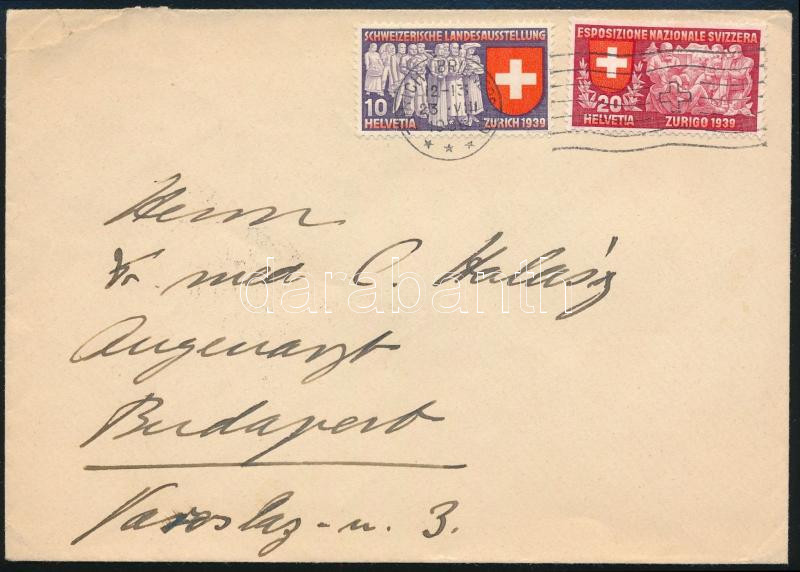 SCHWEIZERISCHE LANDESAUSSTELLUNG
10
HELVETIA ZÜRICH 1939
ESPOSIZIONE NAZIONALE SVIZZERA
20
HELVETIA ZURIGO 1939
12-13
23. VII
Herrn
Dr. med C. Halász
darabanth
Augenarzt
Budapest
Varoshaz-u. 3.